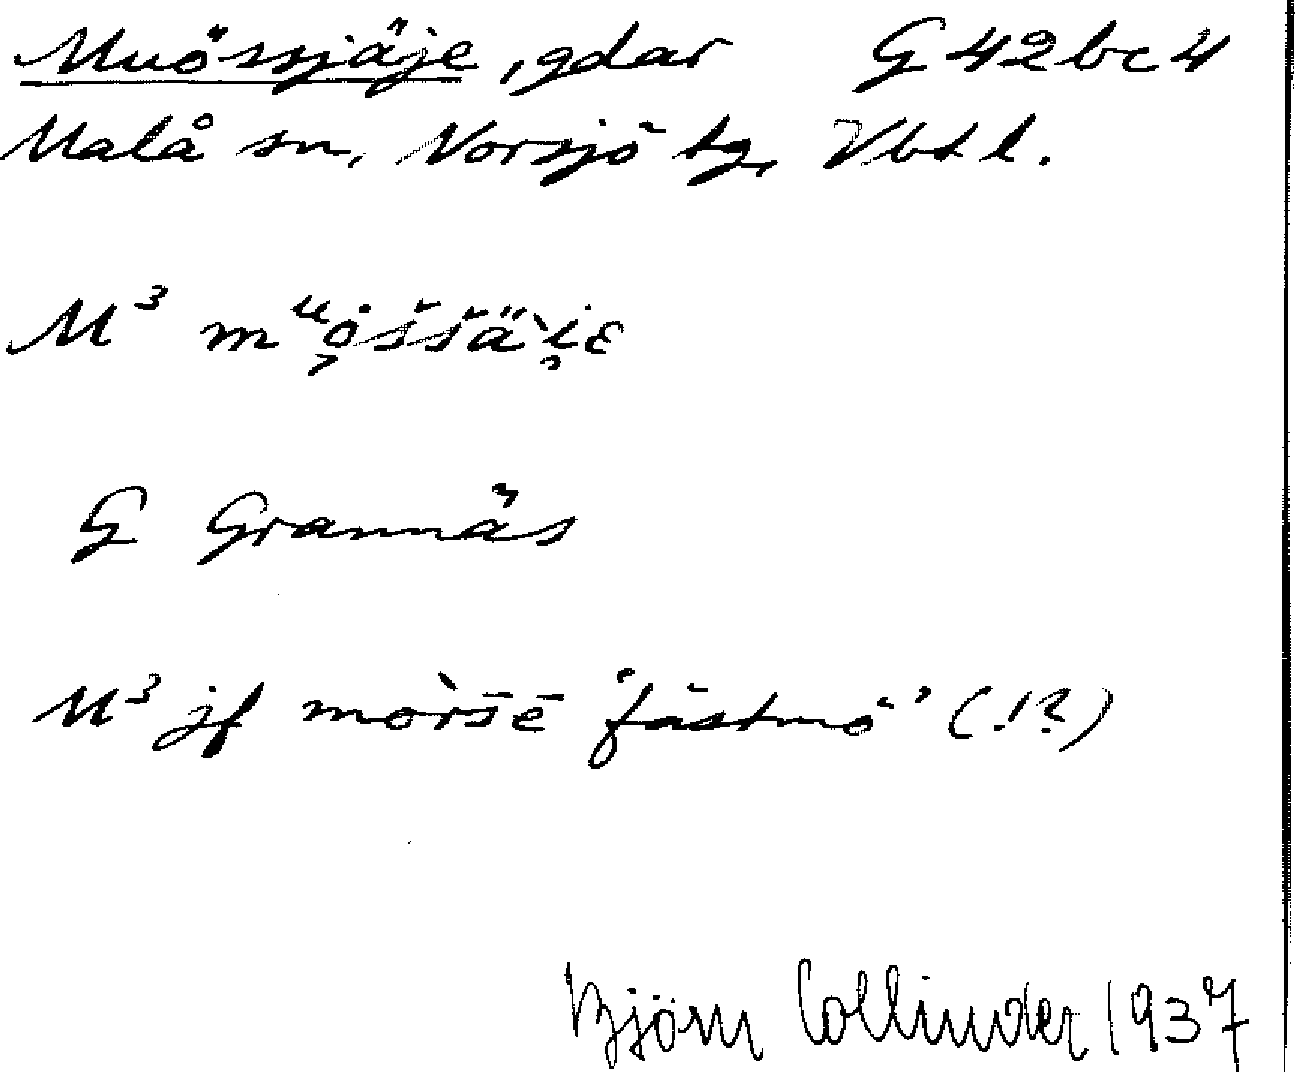 Muössjäje, gdar G 42bc4
Malå sn, Norsjö tg, Vbtl.
M³ mᵘo̧ššä`i̯ɛ
G Grannäs
M³ jf mòršē 'fästmö' (!?)
Björn Collinder 1937